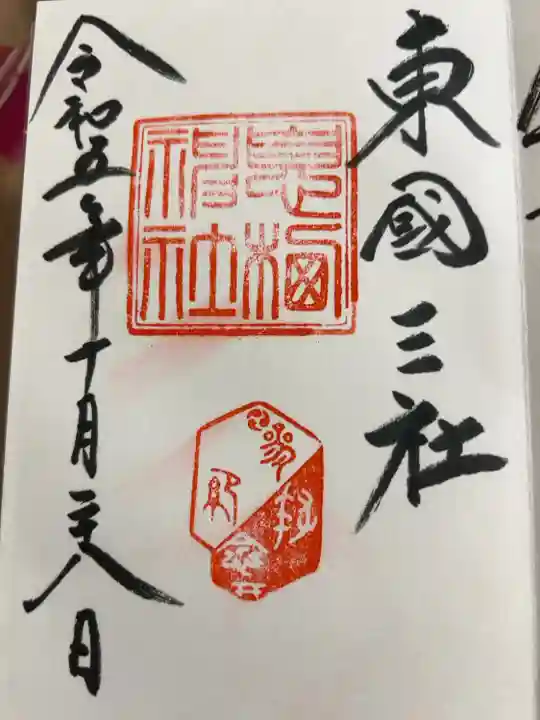 東國三社
息栖
神社
令和五年十月二十八日